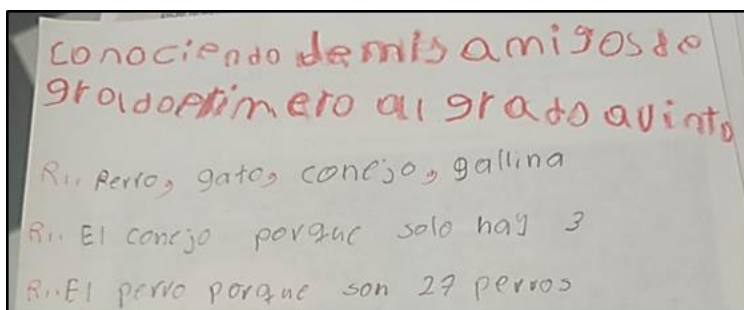 conociendo de mis amigos de
grado primero al grado quinto
R1. Perro, gato, conejo, gallina
R1. El conejo porque solo hay 3
R1. El perro porque son 27 perros